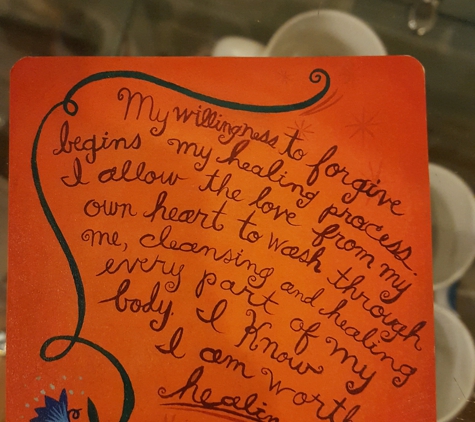 My willingness to forgive
begins my healing process.
I allow the love from my
own heart to wash through
me, cleansing and healing
every part of my
body. I Know
I am